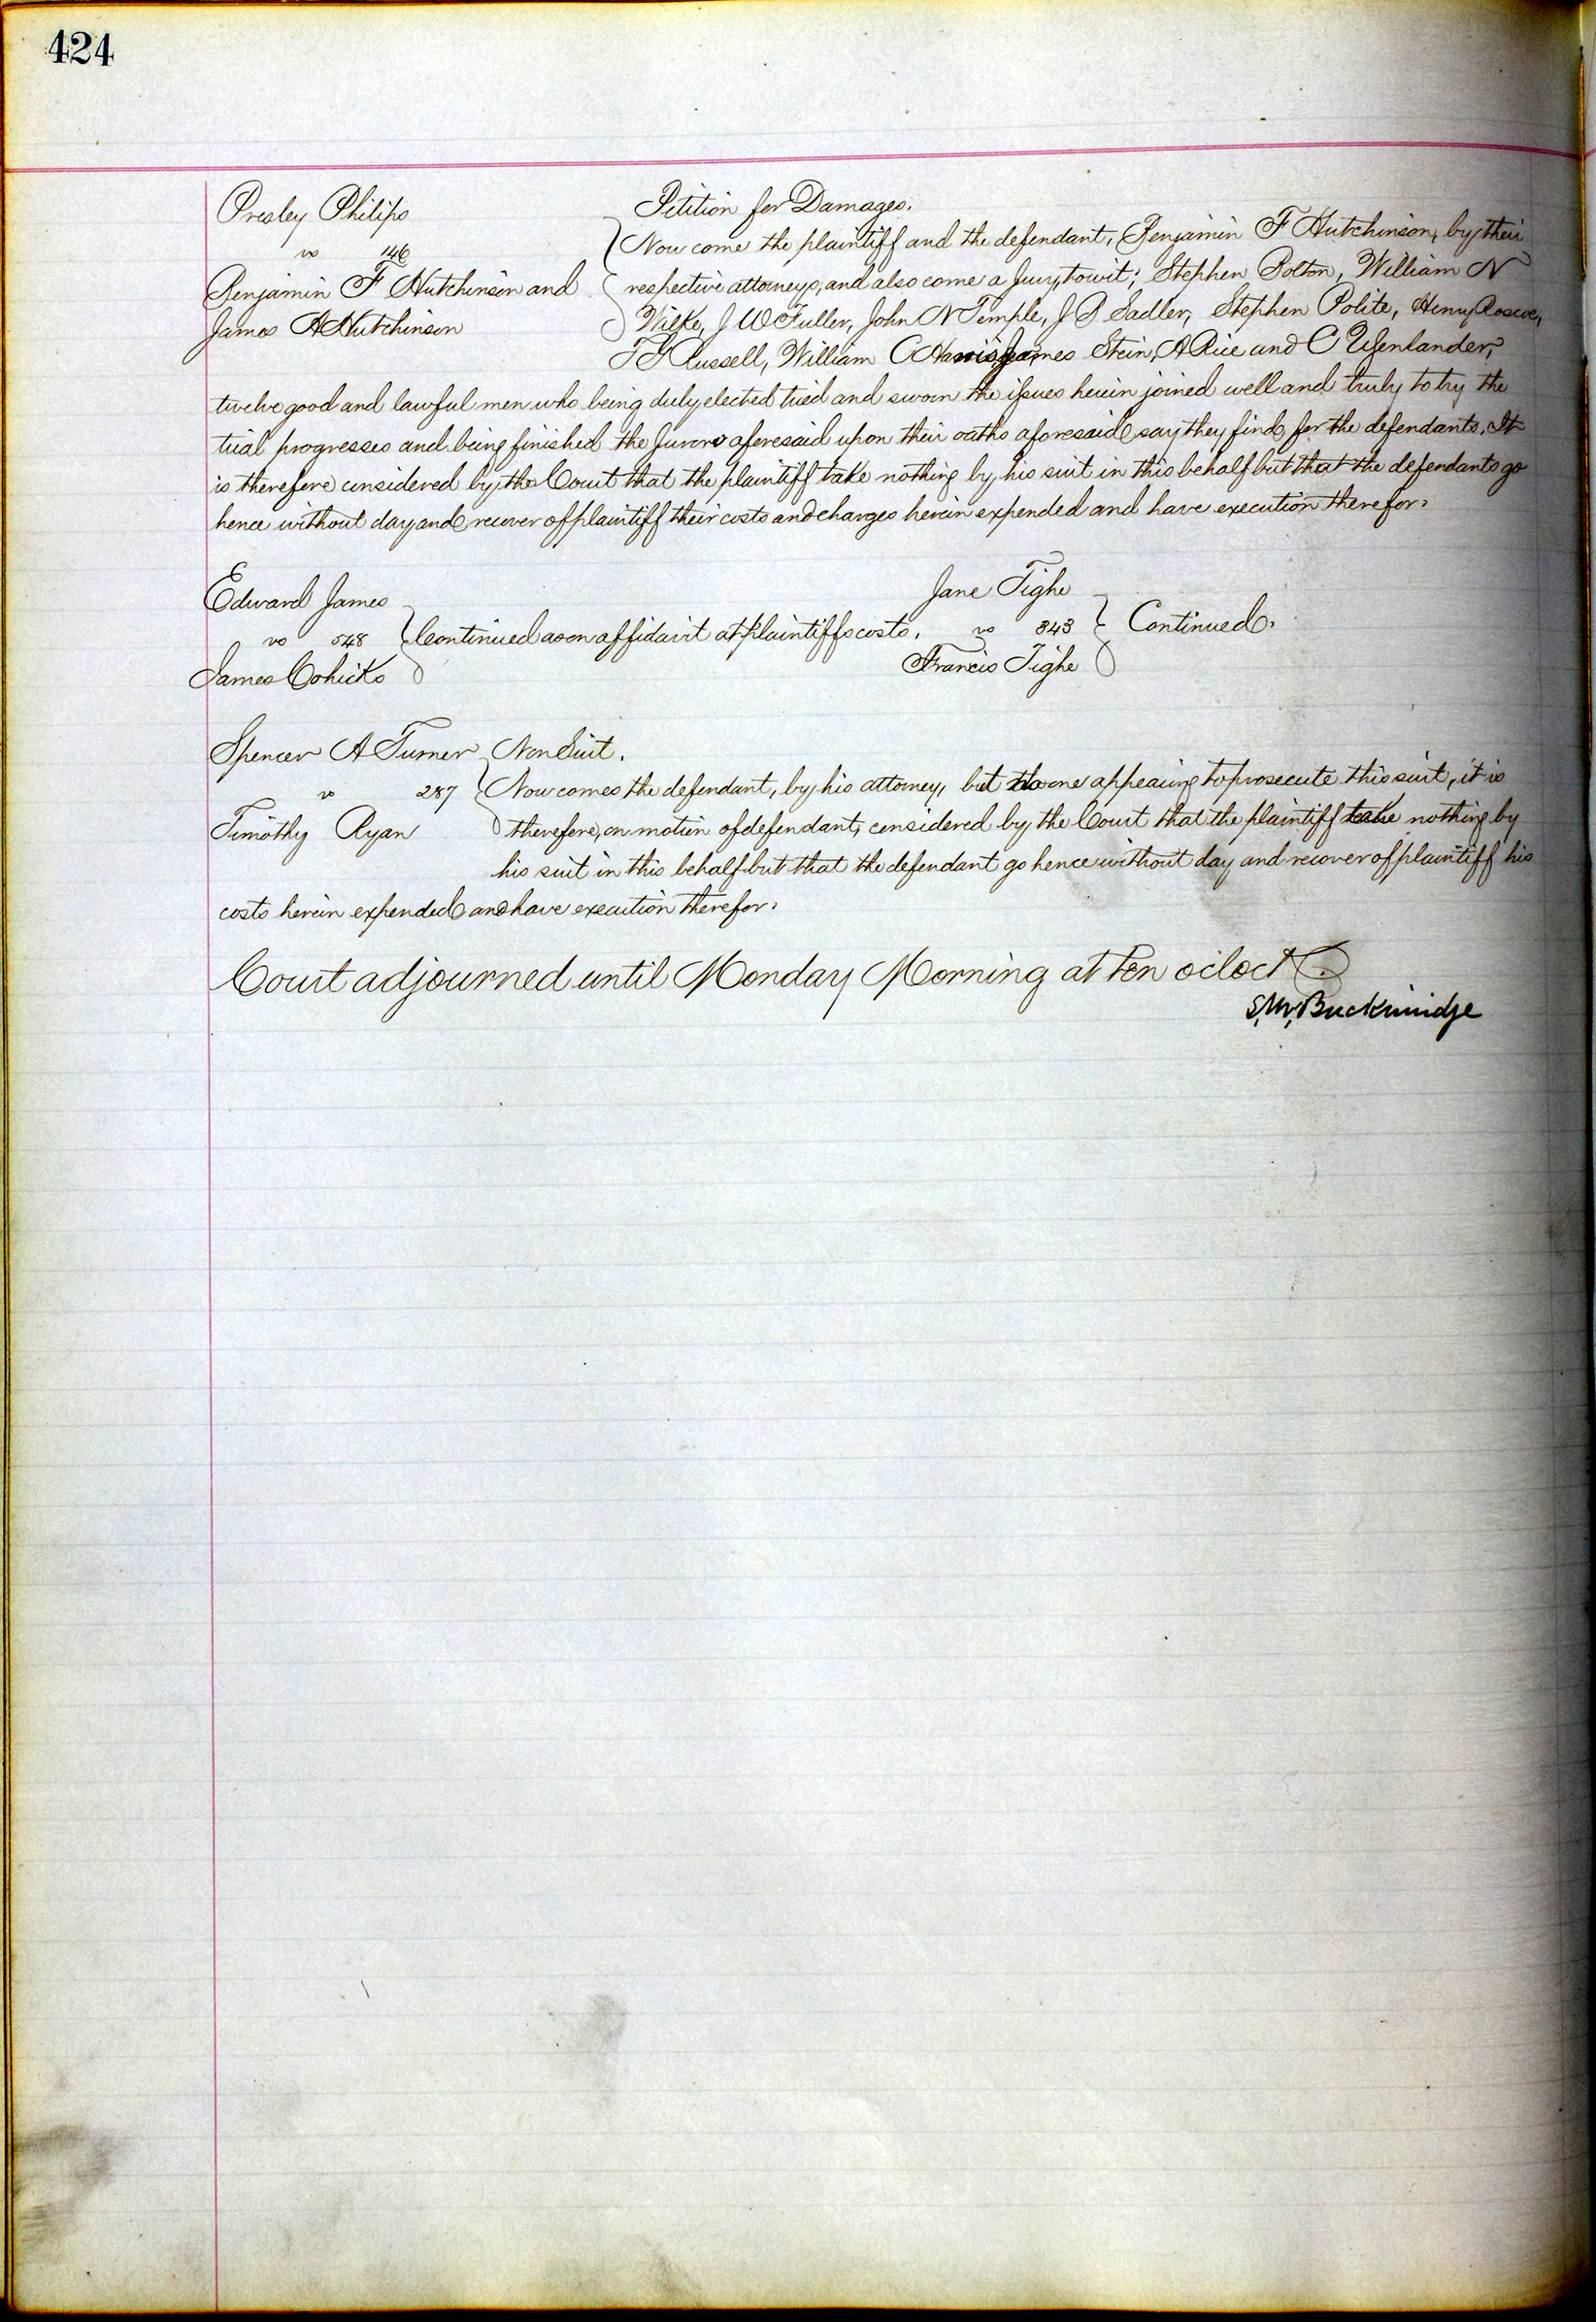 424
Presley Philips
vs 146
Benjamin F Hutchinson and
James A Hutchinson
Petition for Damages.
Now come the plaintiff and the defendant, Benjamin F Hutchinson, by their
respective attorneys, and also come a Jury, to wit; Stephen Bolton, William N
Wilke, J W Fuller, John N Temple, J B Sadler, Stephen Polite, Henry Roscoe,
T G Russell, William C Harris, James Stein, A Rice and C
twelve good and lawful men who being duly elected tried and sworn the issues herein joined well and truly to try the
trial progresses and being finished the Jurors aforesaid upon their oaths aforesaid say they find for the defendants. It
is therefore considered by the Court that the plaintiff take nothing by his suit in this behalf but that the defendants go
hence without day and recover of plaintiff their costs and charges herein expended and have execution therefor.
Edward James
vs 548
James Cohick
Continued as on affidavit at plaintiffs costs.
Jane Tighe
vs 343
Francis Tighe
Continued.
Spencer A Turner
vs 287
Timothy Ryan
Non Suit.
Now comes the defendant, by his attorney, but no one appearing to prosecute this suit, it is
therefore, on motion of defendant, considered by the Court that the plaintiff take nothing by
his suit in this behalf but that the defendant go hence without day and recover of plaintiff his
costs herein expended and have execution therefor.
Court adjourned until Monday Morning at Ten oclock
S. M. Breckinridge